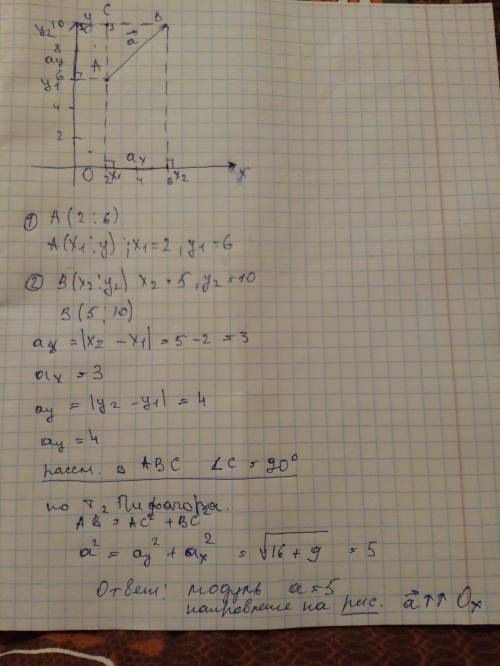 y₂ 10 y C B
8 a⃗
ay A
y₁ 6
4
2
O 2 x₁ aₓ 4 6 x₂ x
① A (2 ; 6)
A(x₁ ; y) ; x₁ = 2 , y₁ = 6
② B(x₂ ; y₂) x₂ = 5 , y₂ = 10
B (5 ; 10)
aₓ = |x₂ - x₁| = 5 - 2 = 3
aₓ = 3
ay = |y₂ - y₁| = 4
ay = 4
рассм. Δ ABC ∠C = 90°
по т. Пифагора.
AB² = AC² + BC²
a² = ay² + aₓ² = √16 + 9 = 5
Ответ: модуль a = 5
направление на рис. a⃗ ↑↑ Oₓ